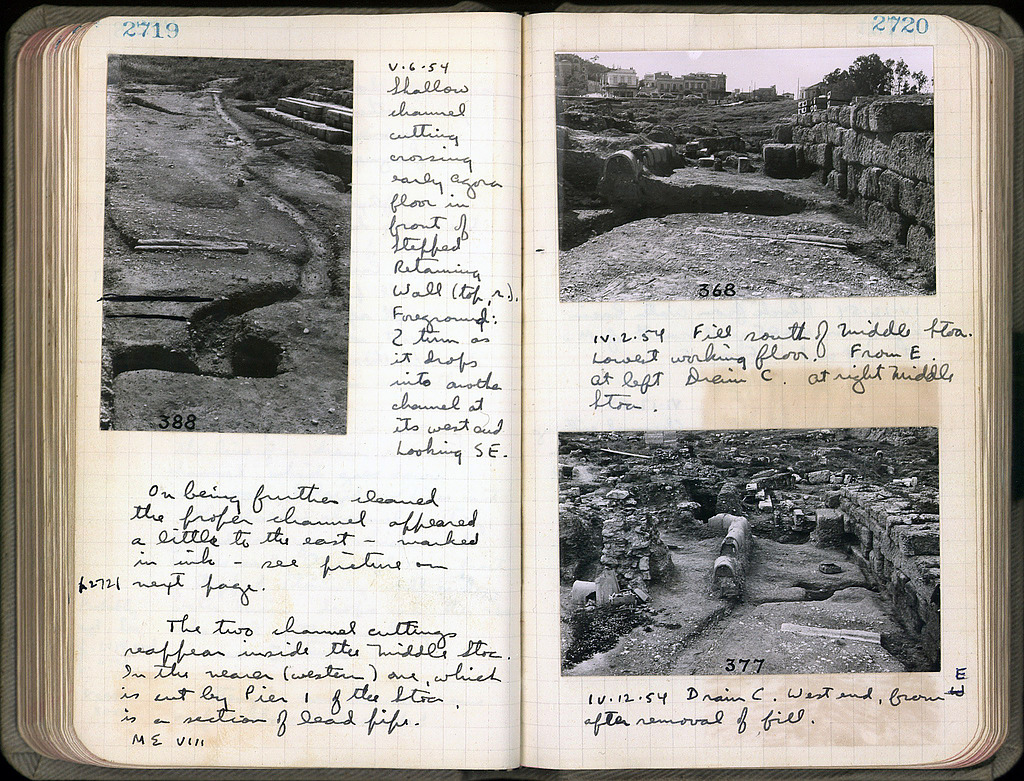 2719
V.6.54
Shallow
channel
cutting
crossing
early Agora
floor in
front of
Stepped
Retaining
Wall (top, r.).
Foreground:
2 turn as
it drops
into another
channel at
its west end
Looking SE.
388
On being further cleaned
the proper channel appeared
a little to the east – marked
in ink – see picture on
p2721 next page.
The two channel cuttings
reappear inside the Middle Stoa.
In the nearer (western) one, which
is cut by Pier 1 of the Stoa,
is a section of lead pipe.
ME VIII
2720
368
IV.2.54 Fill south of Middle Stoa.
Lowest working floor. From E.
At left Drain C. at right Middle
Stoa.
377
E
IV.12.54 Drain C. West end, from W
after removal of fill.